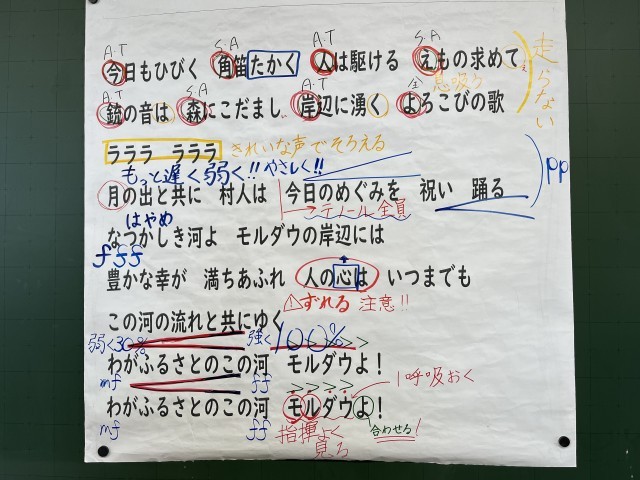 A.T S.A A.T S.A
今日もひびく 角笛たかく 人は駆ける えもの求めて
走らない
息吸う
A.T S.A A.T 全
銃の音は 森にこだまし 岸辺に湧く よろこびの歌
ラララ ラララ きれいな声でそろえる
もっと遅く弱く!! やさしく!!
月の出と共に 村人は 今日のめぐみを 祝い 踊る
pp
テノール全員
はやめ
なつかしき河よ モルダウの岸辺には
fff
豊かな幸が 満ちあふれ 人の心は いつまでも
ずれる 注意!!
この河の流れと共にゆく
弱く30% 強く100% >>>
わがふるさとのこの河 モルダウよ!
mf ff >>>>
1呼吸おく
わがふるさとのこの河 モルダウよ!
mf ff 指揮よく見ろ 合わせる!